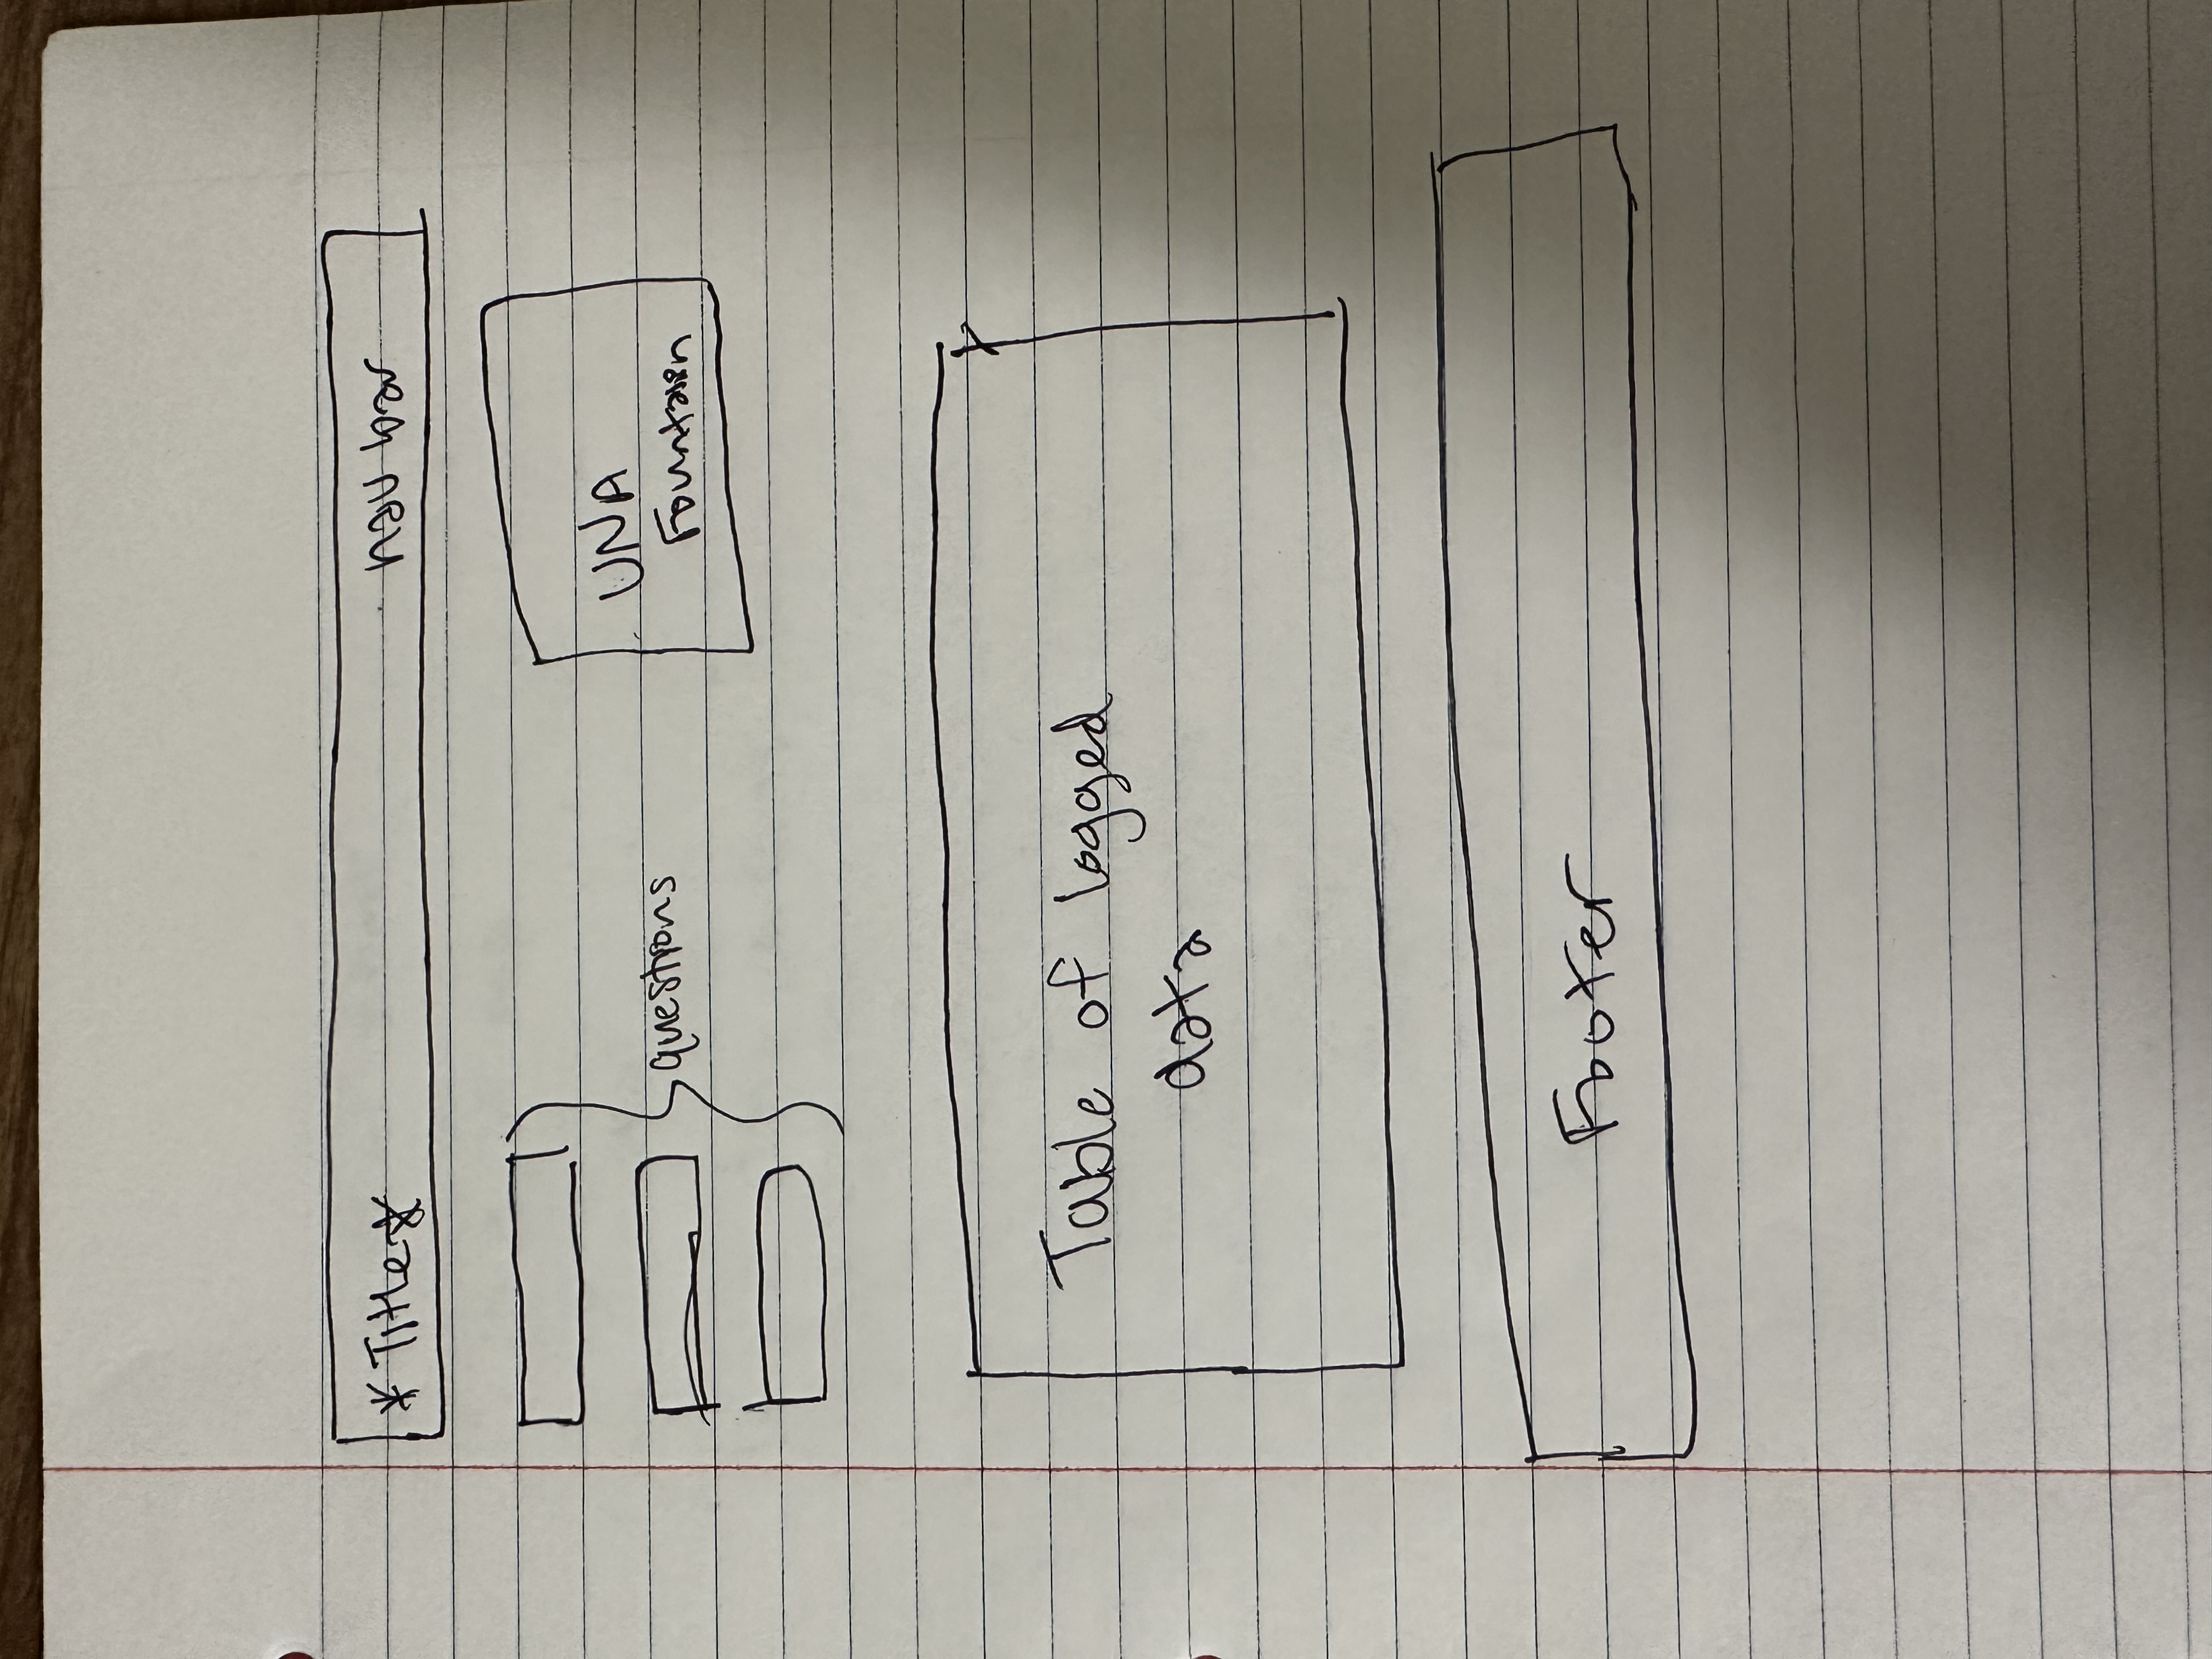 * Title *
nav bar
questions
UNA
Fountain
Table of logged
data
Footer